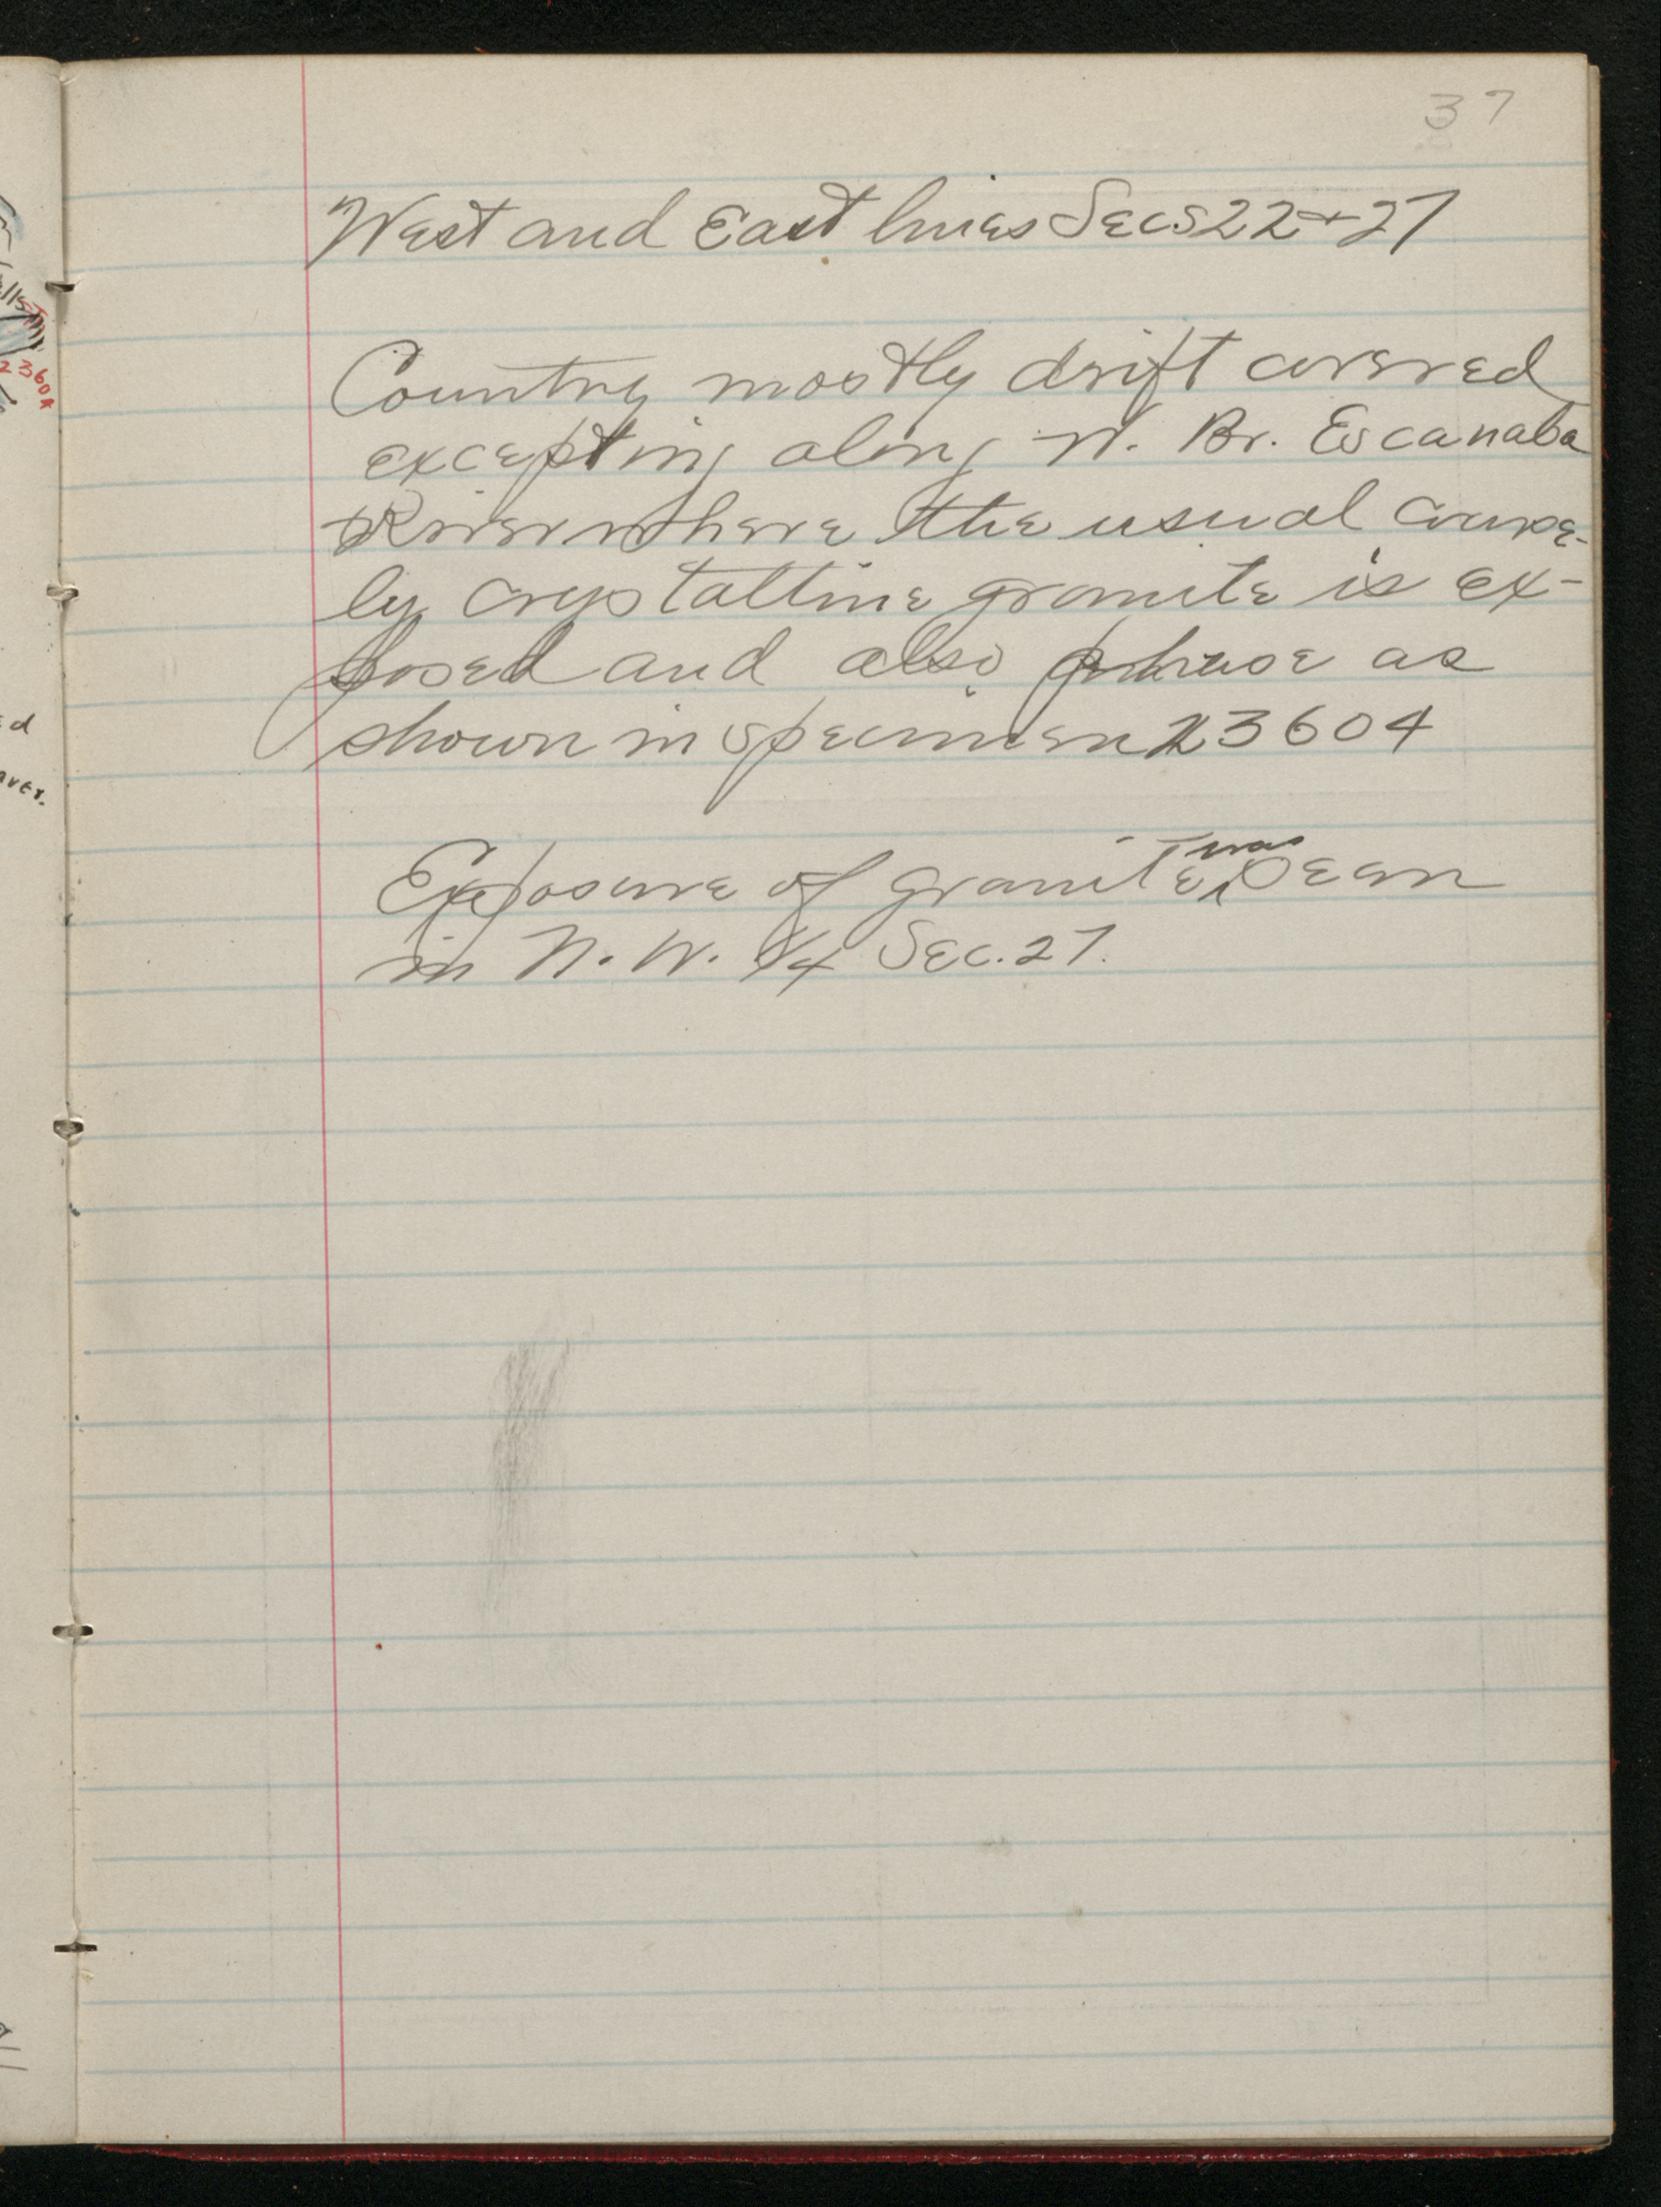 37
West and East lines Secs 22 & 27
Country mostly drift covered
excepting along W. Br. Escanaba
River where the usual coarse-
ly crystalline granite is ex-
posed and also phase as
shown in specimen 23604
Exposure of granite was seen
in N. W. 1/4 Sec. 27.
23604